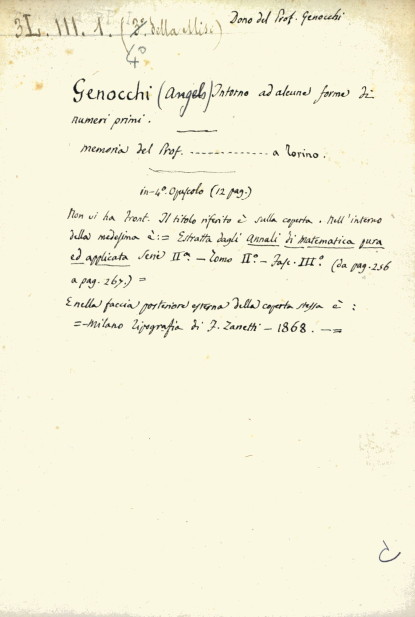 Dono del Prof. Genocchi
3L. III. 1. (2º della Misc)
4º
Genocchi (Angelo) Intorno ad alcune forme di
numeri primi.
memoria del Prof. ............... a Torino.
in-4º Opuscolo (12 pag.)
Non vi ha front. Il titolo riferito è sulla coperta. Nell'interno
della medesima è:= Estratta dagli Annali di Matematica pura
ed applicata Serie IIª — Tomo IIº — Fasc. IIIº (da pag. 256
a pag. 267.) =
E nella faccia posteriore esterna della coperta stessa è :
=-Milano Tipografia di Z. Zanetti - 1868. -=